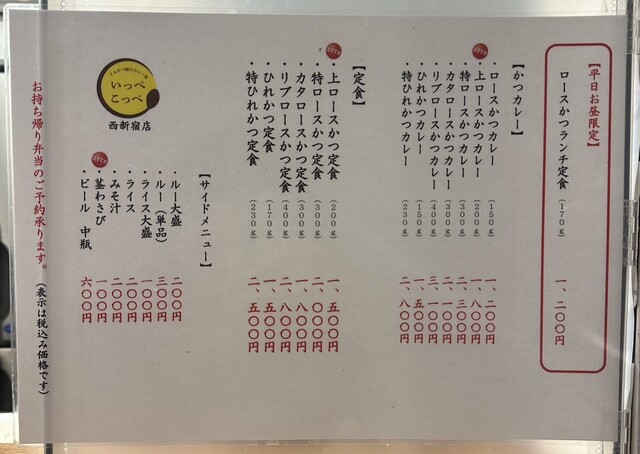 【平日お昼限定】
ロースかつランチ定食 (170g) 一、二〇〇円
【かつカレー】
・ロースかつカレー (150g) 一、二〇〇円
おすすめ
・上ロースかつカレー (200g) 一、八〇〇円
・特ロースかつカレー (300g) 二、三〇〇円
・カタロースかつカレー (300g) 二、一〇〇円
・リブロースかつカレー (400g) 三、一〇〇円
・ひれかつカレー (150g) 一、五〇〇円
・特ひれかつカレー (230g) 二、八〇〇円
【定食】
おすすめ
・上ロースかつ定食 (200g) 一、五〇〇円
・特ロースかつ定食 (300g) 二、〇〇〇円
・カタロースかつ定食 (300g) 一、八〇〇円
・リブロースかつ定食 (400g) 二、八〇〇円
・ひれかつ定食 (170g) 一、五〇〇円
・特ひれかつ定食 (230g) 二、五〇〇円
【サイドメニュー】
・ルー大盛 二〇〇円
・ルー（単品） 三〇〇円
・ライス大盛 一〇〇円
・ライス 二〇〇円
・みそ汁 二〇〇円
おすすめ
・茎わさび 一〇〇円
・ビール 中瓶 六〇〇円
とんかつ屋のカレー屋
いっぺ
こっぺ
西新宿店
お持ち帰り弁当のご予約承ります。(表示は税込み価格です)